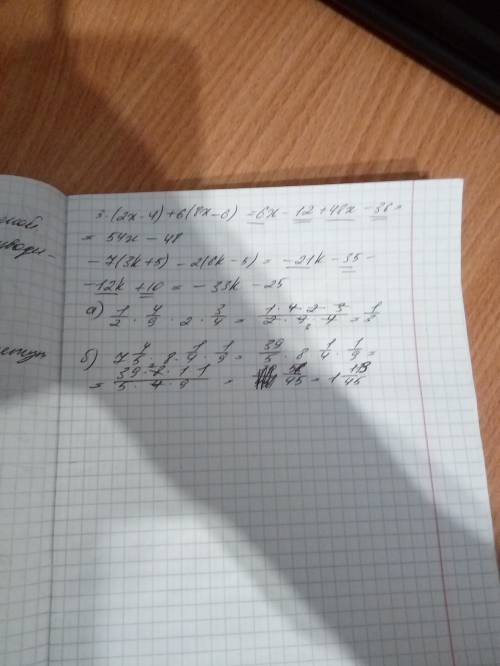 3·(2x-4)+6(8x-6) =6x-12+48x-36=
= 54x - 48
-7(3k+5) - 2(6k-5) = -21k-35-
-12k+10 = -33k -25
а) 1/2 · 4/9 · 2 · 3/4 = 1·4·2·3/2·9·4 = 1/3
б) 7 4/5 · 8 · 1/4 · 1/9 = 39/5 · 8 1/4 · 1/9 =
= 39·2·1·1/5·4·9 = 58/45 = 1 13/45